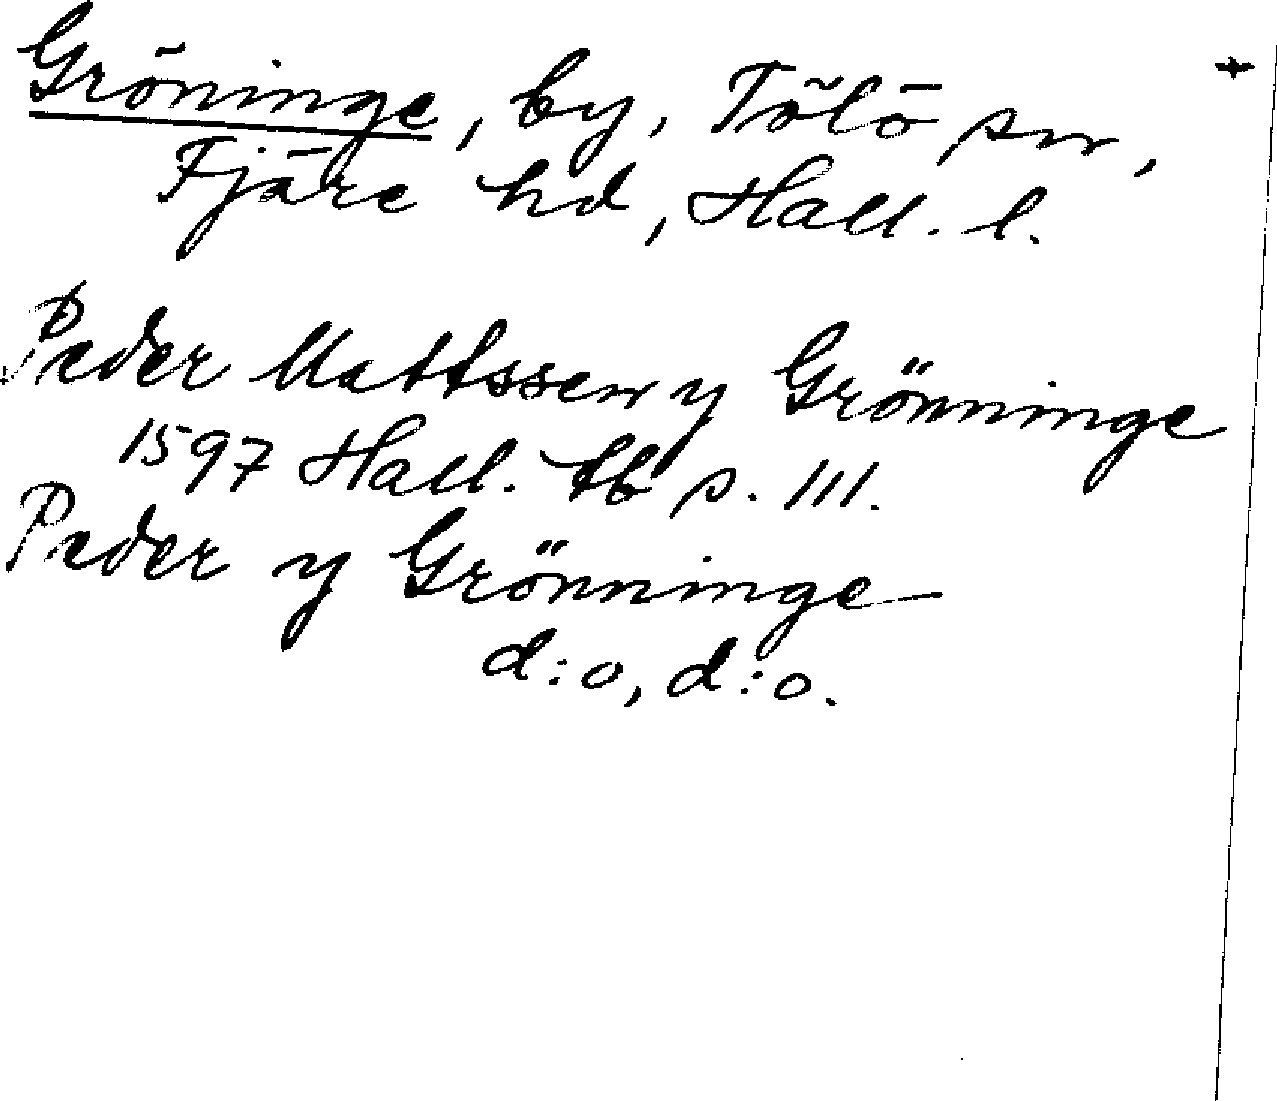 Gröninge, by, Tölö sn,
Fjäre hd, Hall. l.
Peder Mattssen y Grönninge
1597 Hall. tb s. 111.
Peder y Grönninge
d:o, d:o.